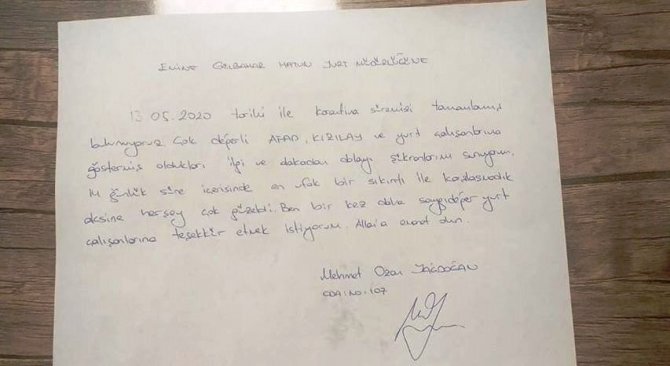 EMİNE GÜLBAHAR HATUN YURT MÜDÜRLÜĞÜNE
13.05.2020 tarihi ile karantina süremizi tamamlamış
bulunuyoruz çok değerli AFAD, KIZILAY ve yurt çalışanlarına
göstermiş oldukları ilgi ve alakadan dolayı şükranlarımı sunuyorum.
14 günlük süre içerisinde en ufak bir sıkıntı ile karşılaşmadık
aksine herşey çok güzeldi. Ben bir kez daha saygıdeğer yurt
çalışanlarına teşekkür etmek istiyorum. Allah'a emanet olun.
Mehmet Ozan YAĞDOĞAN
ODA NO: 107